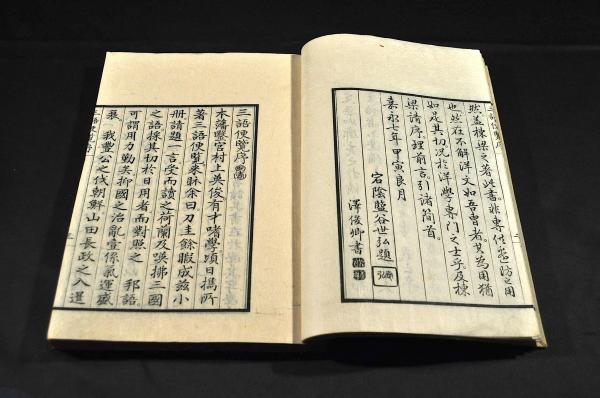 然並棟梁之著此書非專供邊防之用
也然在不解洋文如吾曹者其為用猶
如是其切況於洋學專門之士乎及棟
梁請序理前言引諸簡首
嘉永七年甲寅良月
宕陰鹽谷世弘題
澤俊卿書
三語便覽序
木藩醫官村上英俊有才嗜學項日攜所
著三語便覽來眎余曰刀圭餘暇成茲小
冊請題一言受而讀之荷蘭及暎拂三國
之語採其切於日用者而對照之 邦語
可謂用力勤矣抑國之治亂壹係氣運盛
衰 我豐公之伐朝鮮山田長政之入暹